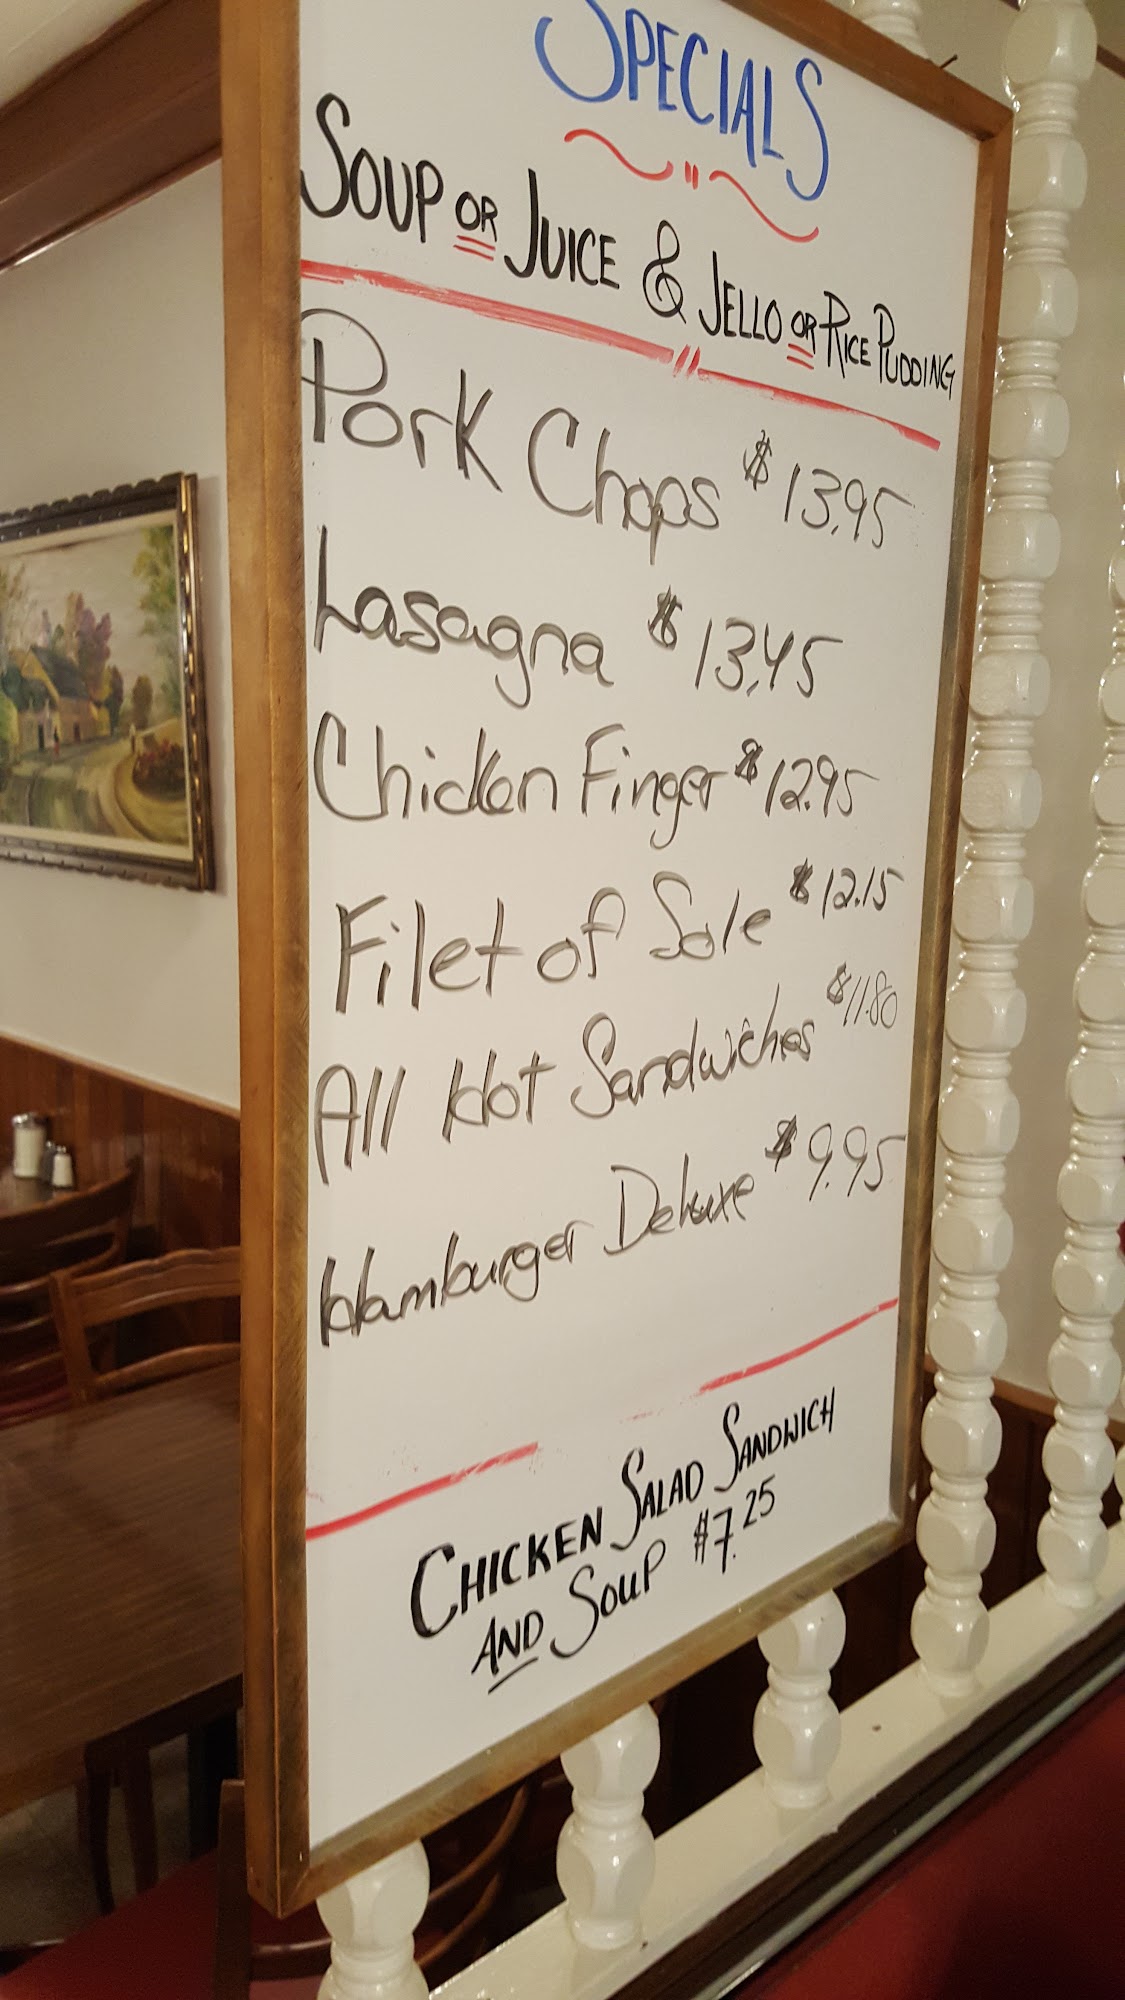 SPECIALS
SOUP OR JUICE & JELLO OR RICE PUDDING
Pork Chops $13.95
Lasagna $13.45
Chicken Finger $12.95
Filet of Sole $12.15
All Hot Sandwiches $11.80
Hamburger Deluxe $9.95
CHICKEN SALAD SANDWICH
AND SOUP $7.25